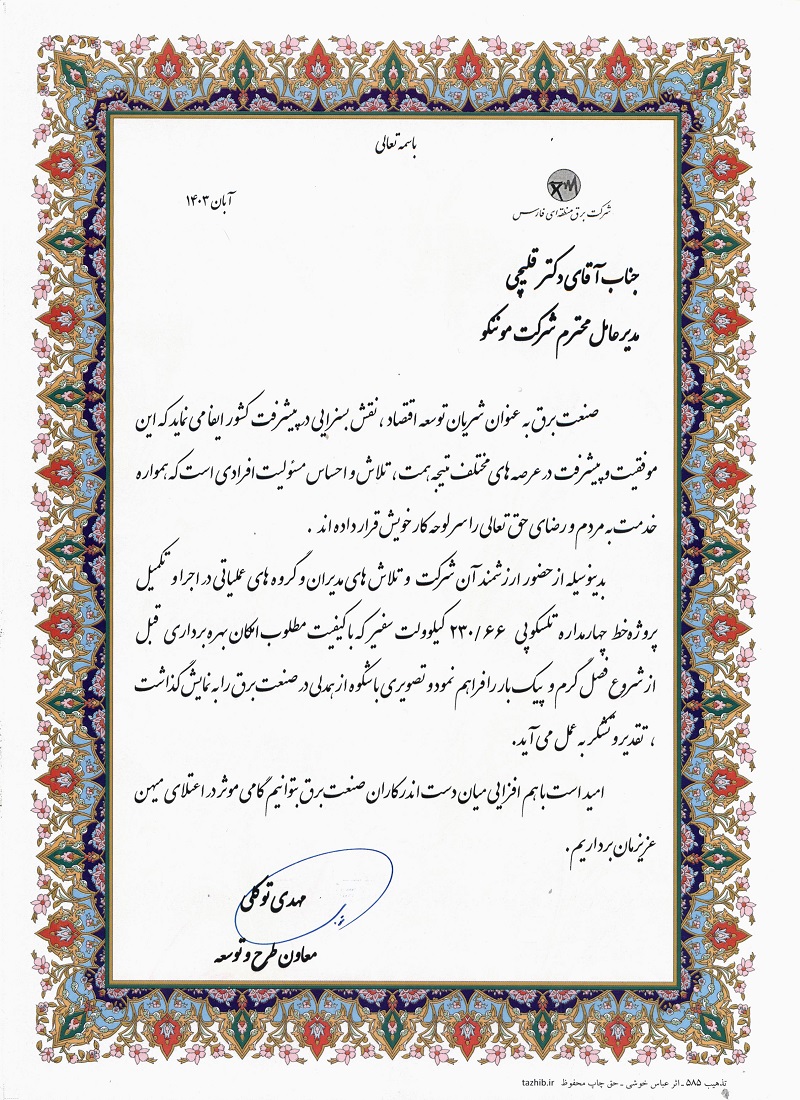 باسمه تعالی
شرکت برق منطقه ای فارس
آبان ۱۴۰۳
جناب آقای دکتر قلیچی
مدیرعامل محترم شرکت موننکو
صنعت برق به عنوان شریان توسعه اقتصاد ، نقش بسزایی در پیشرفت کشور ایفا می نماید که این
موفقیت و پیشرفت در عرصه های مختلف نتیجه همت ، تلاش و احساس مسئولیت افرادی است که همواره
خدمت به مردم و رضای حق تعالی را سرلوحه کار خویش قرار داده اند .
بدینوسیله از حضور ارزشمند آن شرکت و تلاش های مدیران و گروه های عملیاتی در اجرا و تکمیل
پروژه خط چهارمداره تلسکوپی ۲۳۰/۶۶ کیلوولت سفیر که با کیفیت مطلوب امکان بهره برداری قبل
از شروع فصل گرم و پیک بار را فراهم نمود و تصویری باشکوه از همدلی در صنعت برق را به نمایش گذاشت
، تقدیر و تشکر به عمل می آید.
امید است با هم افزایی میان دست اندرکاران صنعت برق بتوانیم گامی موثر در اعتلای میهن
عزیزمان برداریم.
مهدی توکلی
معاون طرح و توسعه
تذهیب ۵۸۵ ـ اثر عباس خوشی ـ حق چاپ محفوظ tazhib.ir